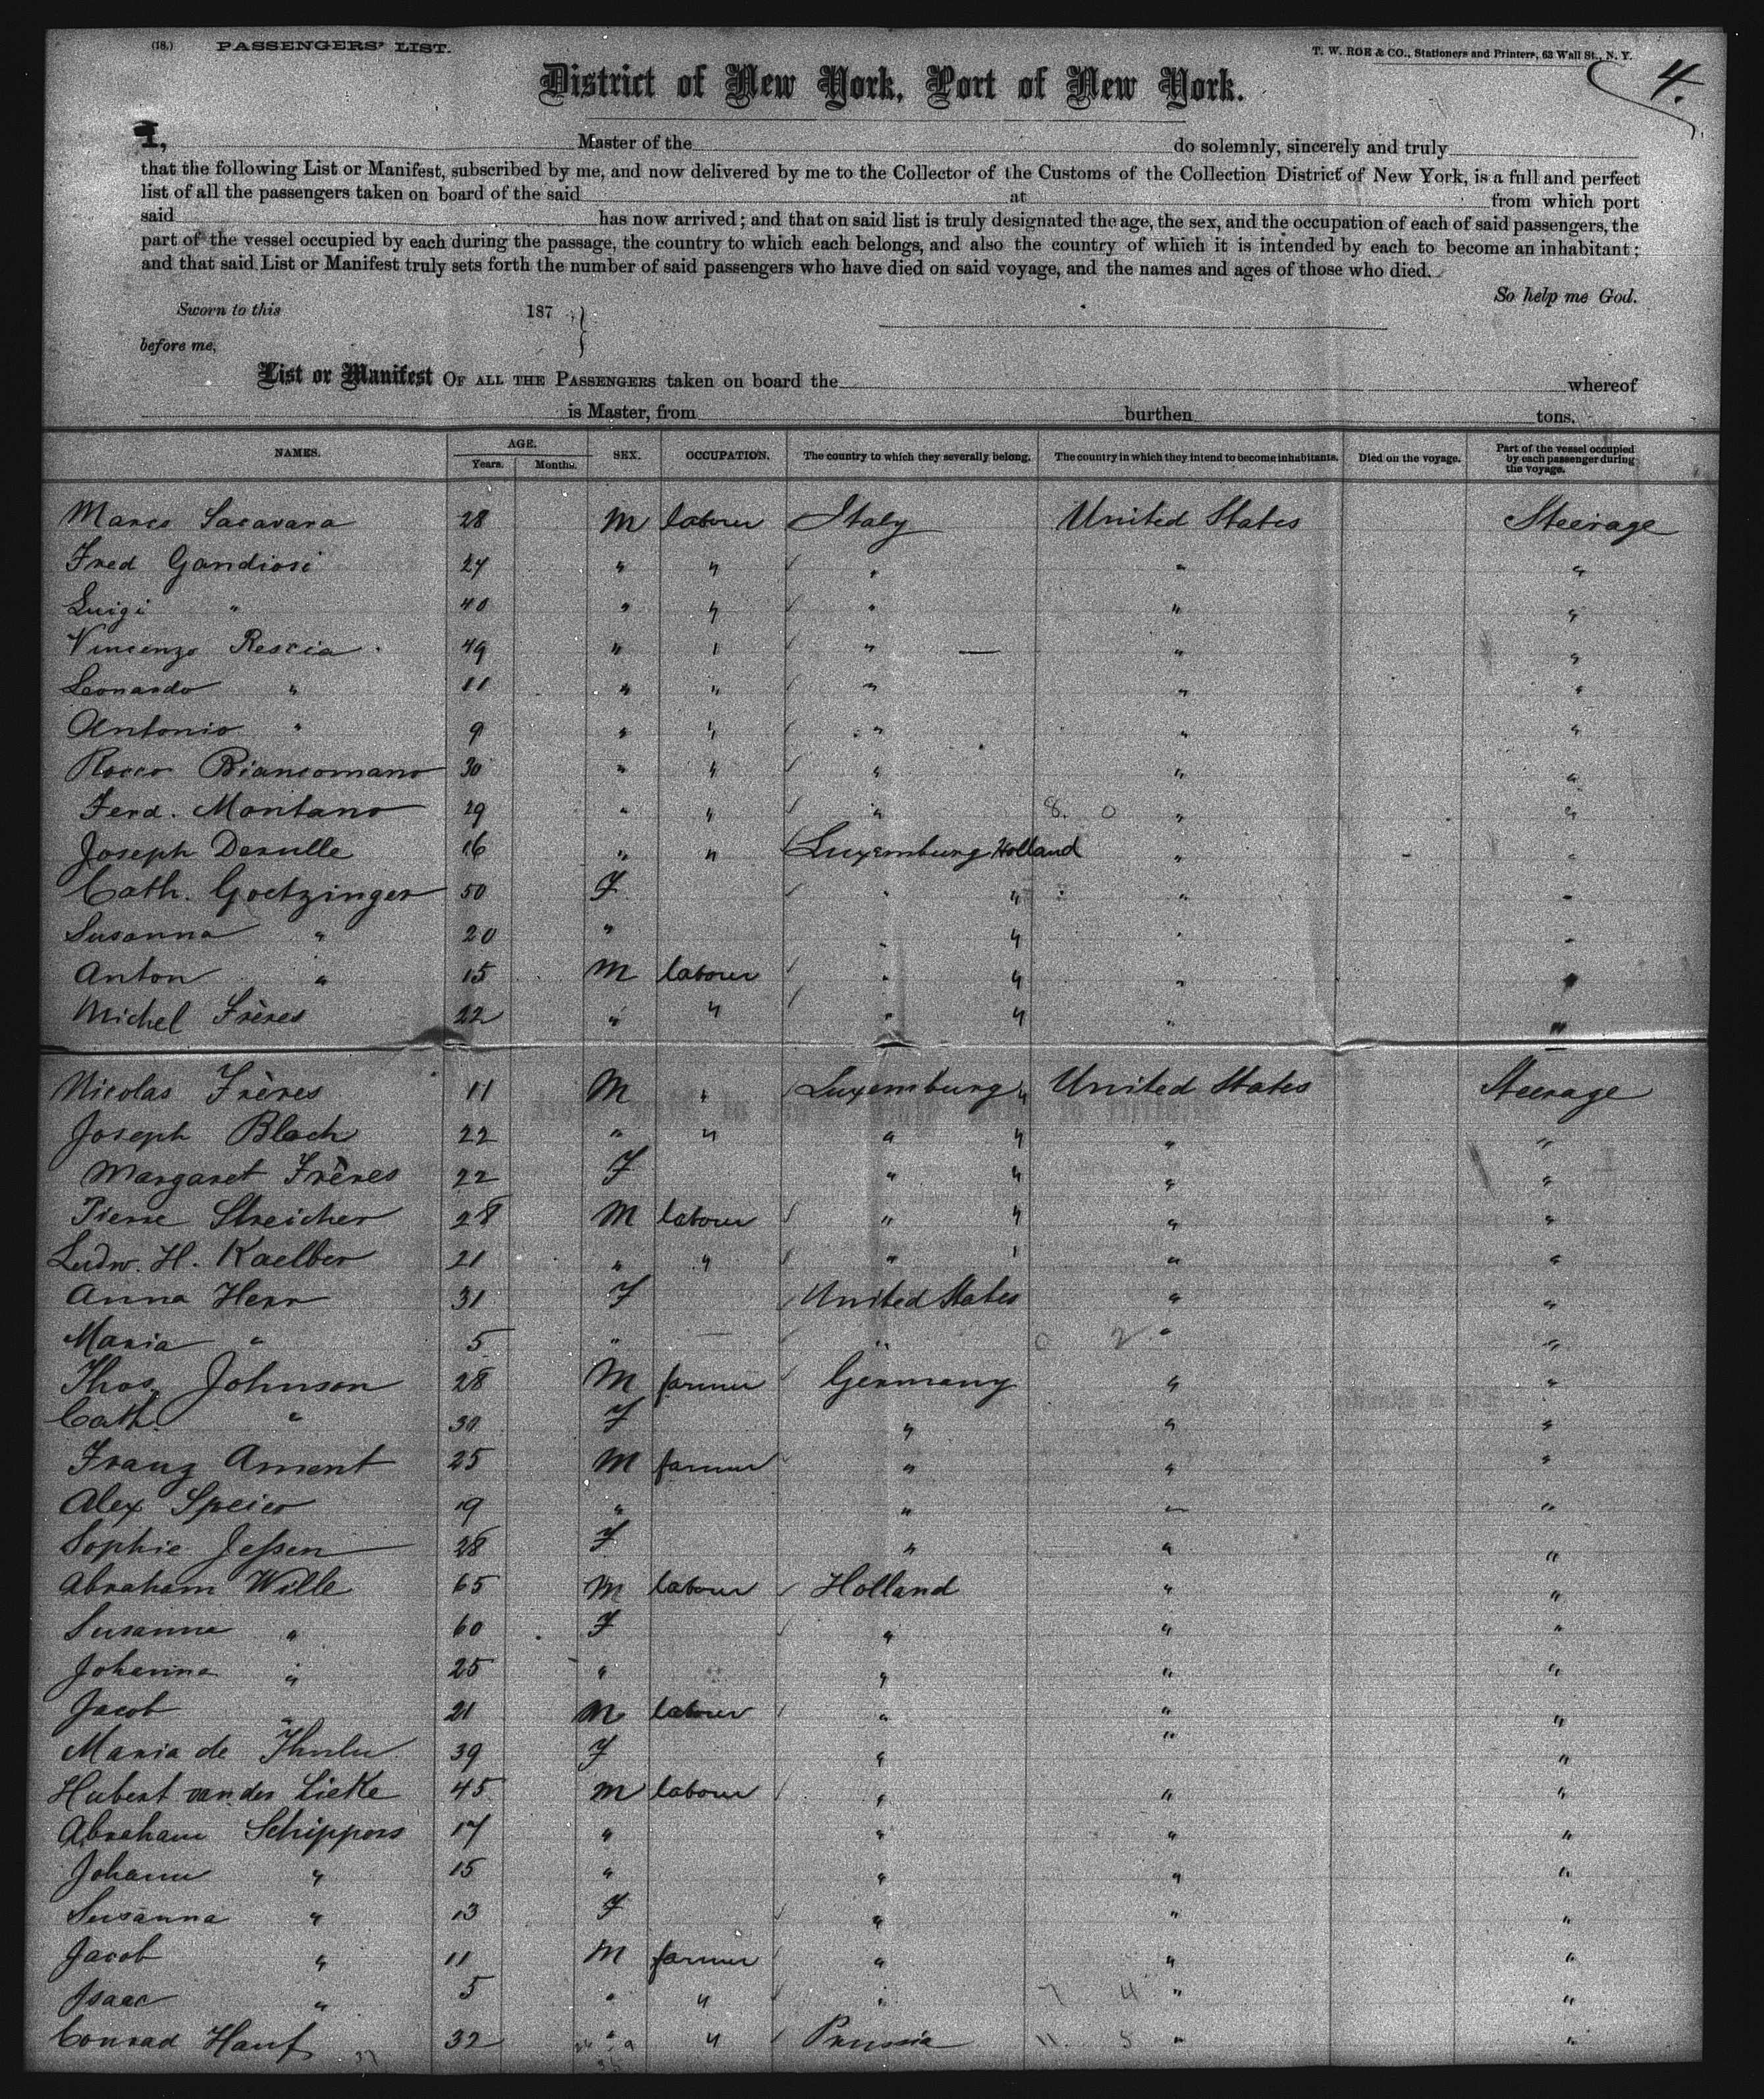 (18.) PASSENGERS' LIST. T. W. ROE & CO., Stationers and Printers, 63 Wall St., N. Y. 4.
District of New York, Port of New York.
I, Master of the do solemnly, sincerely and truly
that the following List or Manifest, subscribed by me, and now delivered by me to the Collector of the Customs of the Collection District of New York, is a full and perfect
list of all the passengers taken on board of the said at from which port
said has now arrived; and that on said list is truly designated the age, the sex, and the occupation of each of said passengers, the
part of the vessel occupied by each during the passage, the country to which each belongs, and also the country of which it is intended by each to become an inhabitant;
and that said List or Manifest truly sets forth the number of said passengers who have died on said voyage, and the names and ages of those who died.
So help me God.
Sworn to this 187
before me,
List or Manifest OF ALL THE PASSENGERS taken on board the whereof
is Master, from burthen tons.
NAMES. AGE. Years. Months. SEX. OCCUPATION. The country to which they severally belong. The country in which they intend to become inhabitants. Died on the voyage. Part of the vessel occupied by each passenger during the voyage.
Marco Sacavara 28 M labour Italy United States Steerage
Fred Gandiosi 24 " " " " "
Luigi " 40 " " " " "
Vincenzo Rescia 49 " " " " "
Leonardo " 11 " " " " "
Antonio " 9 " " " " "
Rocco Biancomano 30 " " " " "
Ferd. Montano 29 " " " 8. 0 " "
Joseph Derulle 16 " " Luxemburg Holland " "
Cath. Goetzinger 50 F " " " "
Susanna " 20 " " " " "
Anton " 15 M labour " " " "
Michel Frères 22 " " " " " "
Nicolas Frères 11 M " Luxemburg " United States Steerage
Joseph Bloch 22 " " " " " "
Margaret Frères 22 F " " " "
Pierre Streicher 28 M labour " " " "
Ludw. H. Kaelber 21 " " " " " "
Anna Herr 31 F United States " "
Maria " 5 " " 0 2 " "
Thos. Johnson 28 M farmer Germany " "
Cath. " 30 F " " "
Franz Ament 25 M farmer " " "
Alex Speier 19 " " " "
Sophie Jessen 28 F " " "
Abraham Wille 65 M labour Holland " "
Susanna " 60 F " " "
Johanna " 25 " " " "
Jacob " 21 M labour " " "
Maria de 39 F " " "
Hubert van der Lieke 45 M labour " " "
Abraham Schippors 17 " " " "
Johann " 15 " " " "
Susanna " 13 F " " "
Jacob " 11 M farmer " " "
Isaac " 5 " " " 7 4 " "
Conrad Hauf 32 " " Prussia 11. 5 " "